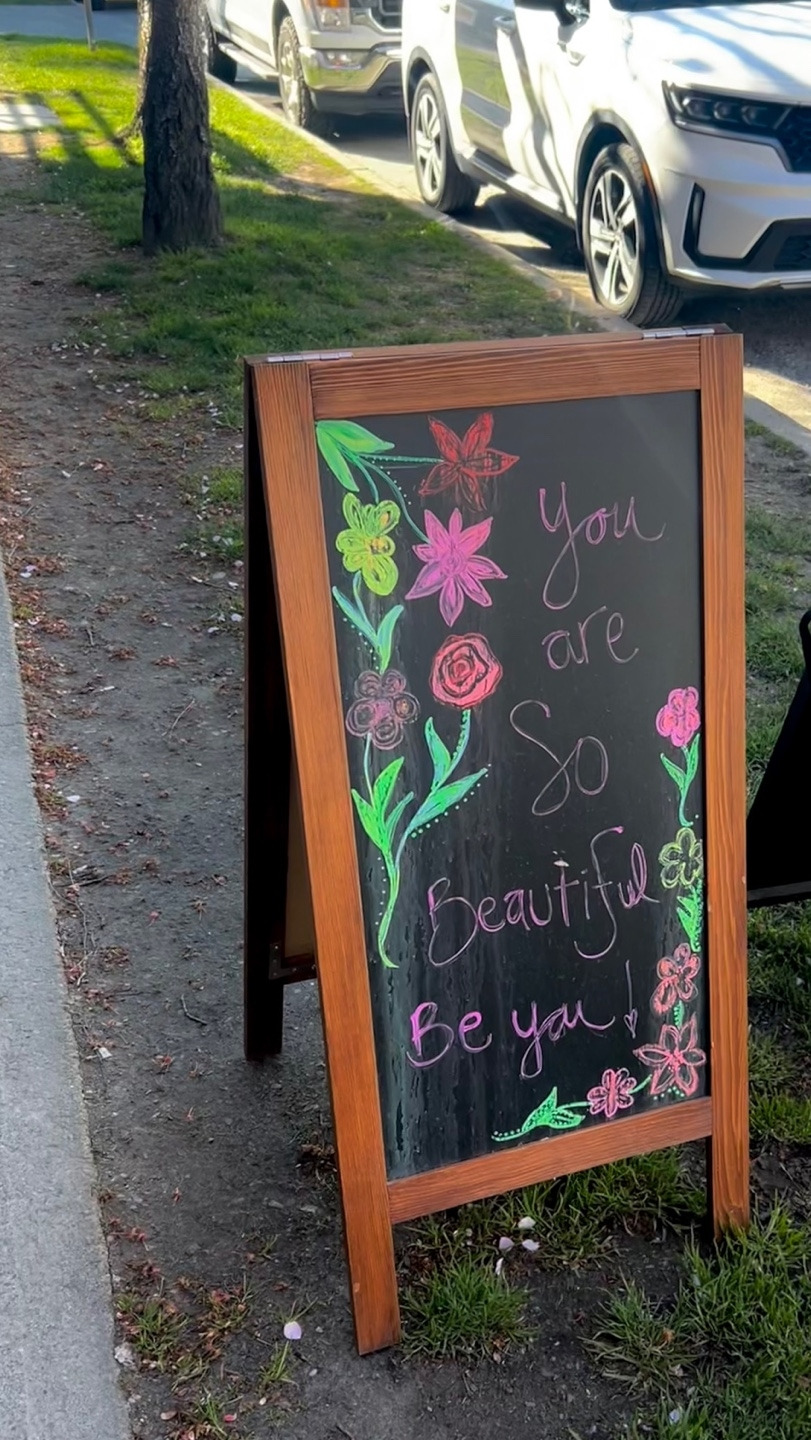 You
are
So
Beautiful
Be you!